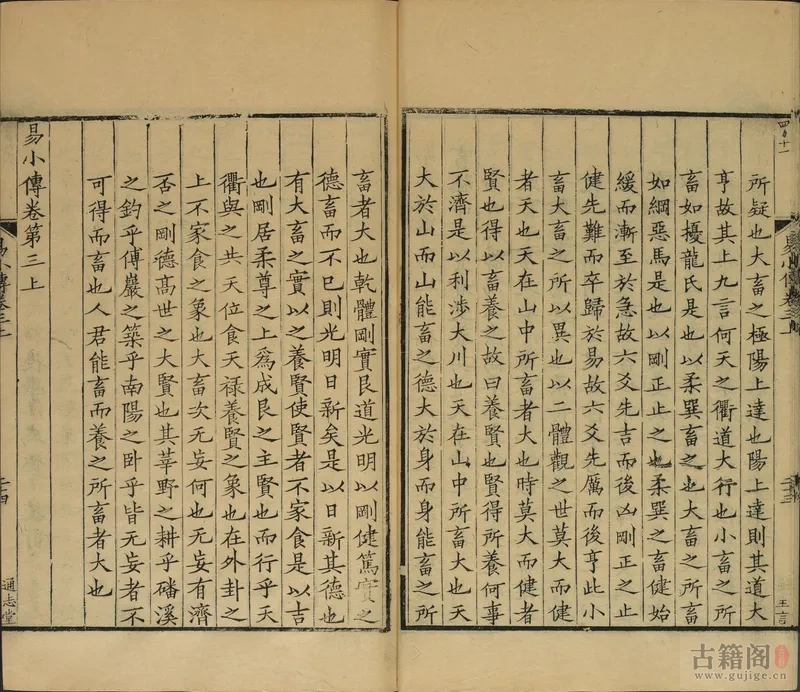 所疑也大畜之極陽上達也陽上達則其道大
亨故其上九言何天之衢道大行也小畜之所
畜如擾龍氏是也以柔巽畜之也大畜之所畜
如綱惡馬是也以剛正止之也柔巽之畜健始
緩而漸至於急故六爻先吉而後凶剛正之止
健先難而卒歸於易故六爻先厲而後亨此小
畜大畜之所以異也以二體觀之世莫大而健
者天也天在山中所畜者大也時莫大而健者
賢也得以畜養之故曰養賢也賢得所養何事
不濟是以利涉大川也天在山中所畜大也天
大於山而山能畜之德大於身而身能畜之所
畜者大也乾體剛實艮道光明以剛健篤實之
德畜而不已則光明日新矣是以日新其德也
有大畜之實以之養賢使賢者不家食是以吉
也剛居柔尊之上爲成艮之主賢也而行乎天
衢與之共天位食天祿養賢之象也在外卦之
上不家食之象也大畜次无妄何也无妄有濟
否之剛德高世之大賢也其莘野之耕乎磻溪
之釣乎傅巖之築乎南陽之卧乎皆无妄者不
可得而畜也人君能畜而養之所畜者大也
易小傳卷第三上
通志堂
古籍阁
www.gujige.cn